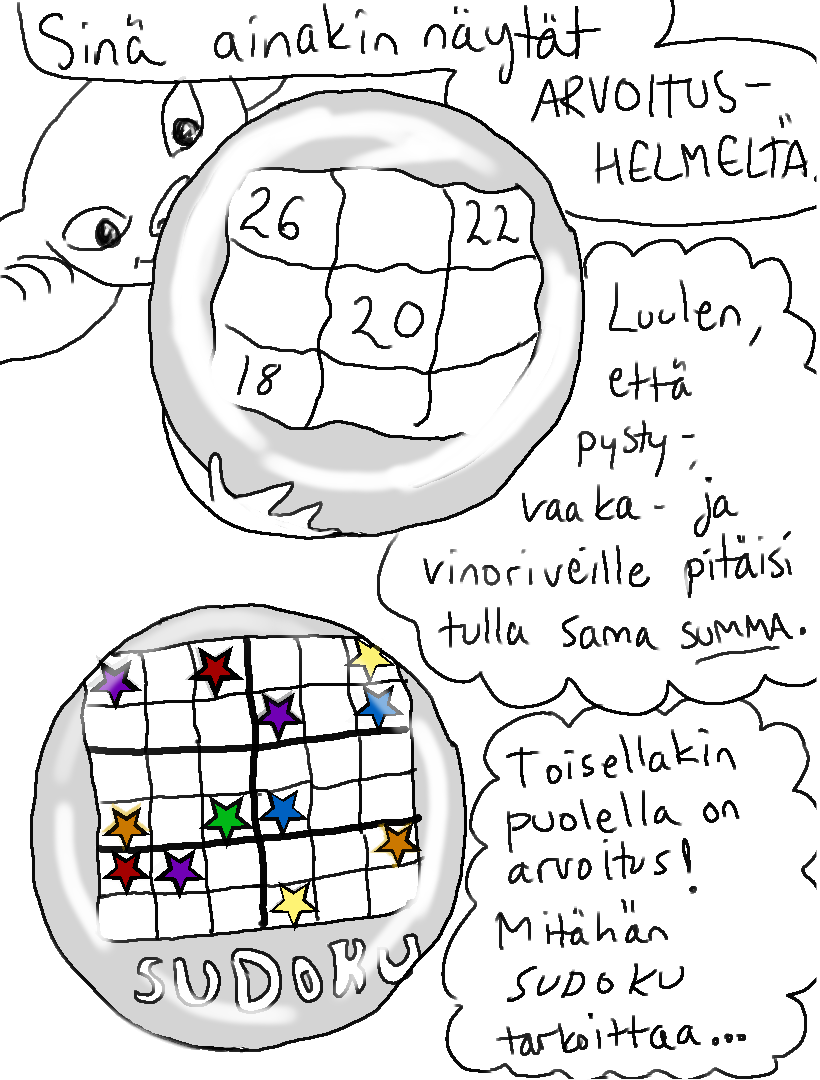 Sinä ainakin näytät
ARVOITUS-
HELMELTÄ.
26 22
20
18
Luulen,
että
pysty-,
vaaka- ja
vinoriveille pitäisi
tulla sama SUMMA.
Toisellakin
puolella on
arvoitus!
Mitähän
SUDOKU
tarkoittaa...
SUDOKU